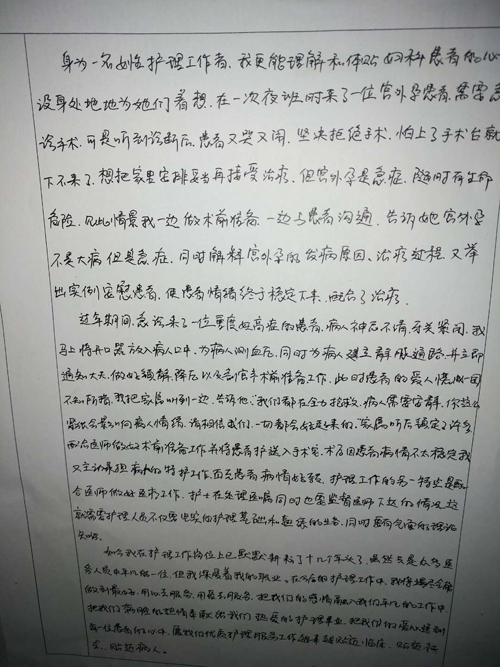 身为一名女性护理工作者，我更能理解和体贴妇科患者的心
设身处地地为她们着想。在一次夜班时来了一位宫外孕患者，需要急
诊手术，可是听到诊断后，患者又哭又闹，坚决拒绝手术，怕上了手术台就
下不来了，想把家里安排妥当再接受治疗。但宫外孕是急症，随时有生命
危险，见此情景我一边做术前准备，一边与患者沟通，告诉她宫外孕
不是大病但是急症，同时解释宫外孕的发病原因、治疗过程，又举
出实例安慰患者，使患者情绪终于稳定下来，配合了治疗。
过年期间，急诊来了一位重度妊高症的患者，病人神志不清，牙关紧闭，我
马上将开口器放入病人口中，为病人测血压，同时为病人建立静脉通路，并立即
通知大夫，做好镇静、降压以及剖宫手术前准备工作，此时患者的爱人慌做一团
不知所措，我把家属叫到一边，告诉他：我们都在全力抢救，病人需要安静，你这么
紧张会影响病人情绪，请相信我们，一切都会好起来的，家属听后镇定了许多，
配合医师做好术前准备工作并将患者护送入手术室，术后因患者病情不太稳定我
又主动承担病人的特护工作，直至患者病情好转。护理工作的另一特点是配
合医师做好医疗工作，护士在处理医嘱同时也要监督医嘱下达的情况，这
就需要护理人员不仅要有坚实的护理基础和
同时要有完善的理论
知识。
如今我在护理工作岗位上已默默耕耘了十几个年头了，虽然只是众多医
务人员中平凡的一位，但我深爱着我的职业。在今后的护理工作中，我将竭尽全能
做到最好，用心去服务，用爱去服务，把我们的感情融入我们平凡的工作中
把我们满腔的热情奉献给我们热爱的护理事业，把我们的爱心送到
每一位患者的心中，
优质护理服务工作越来越贴近临床，贴近社
会，贴近病人。